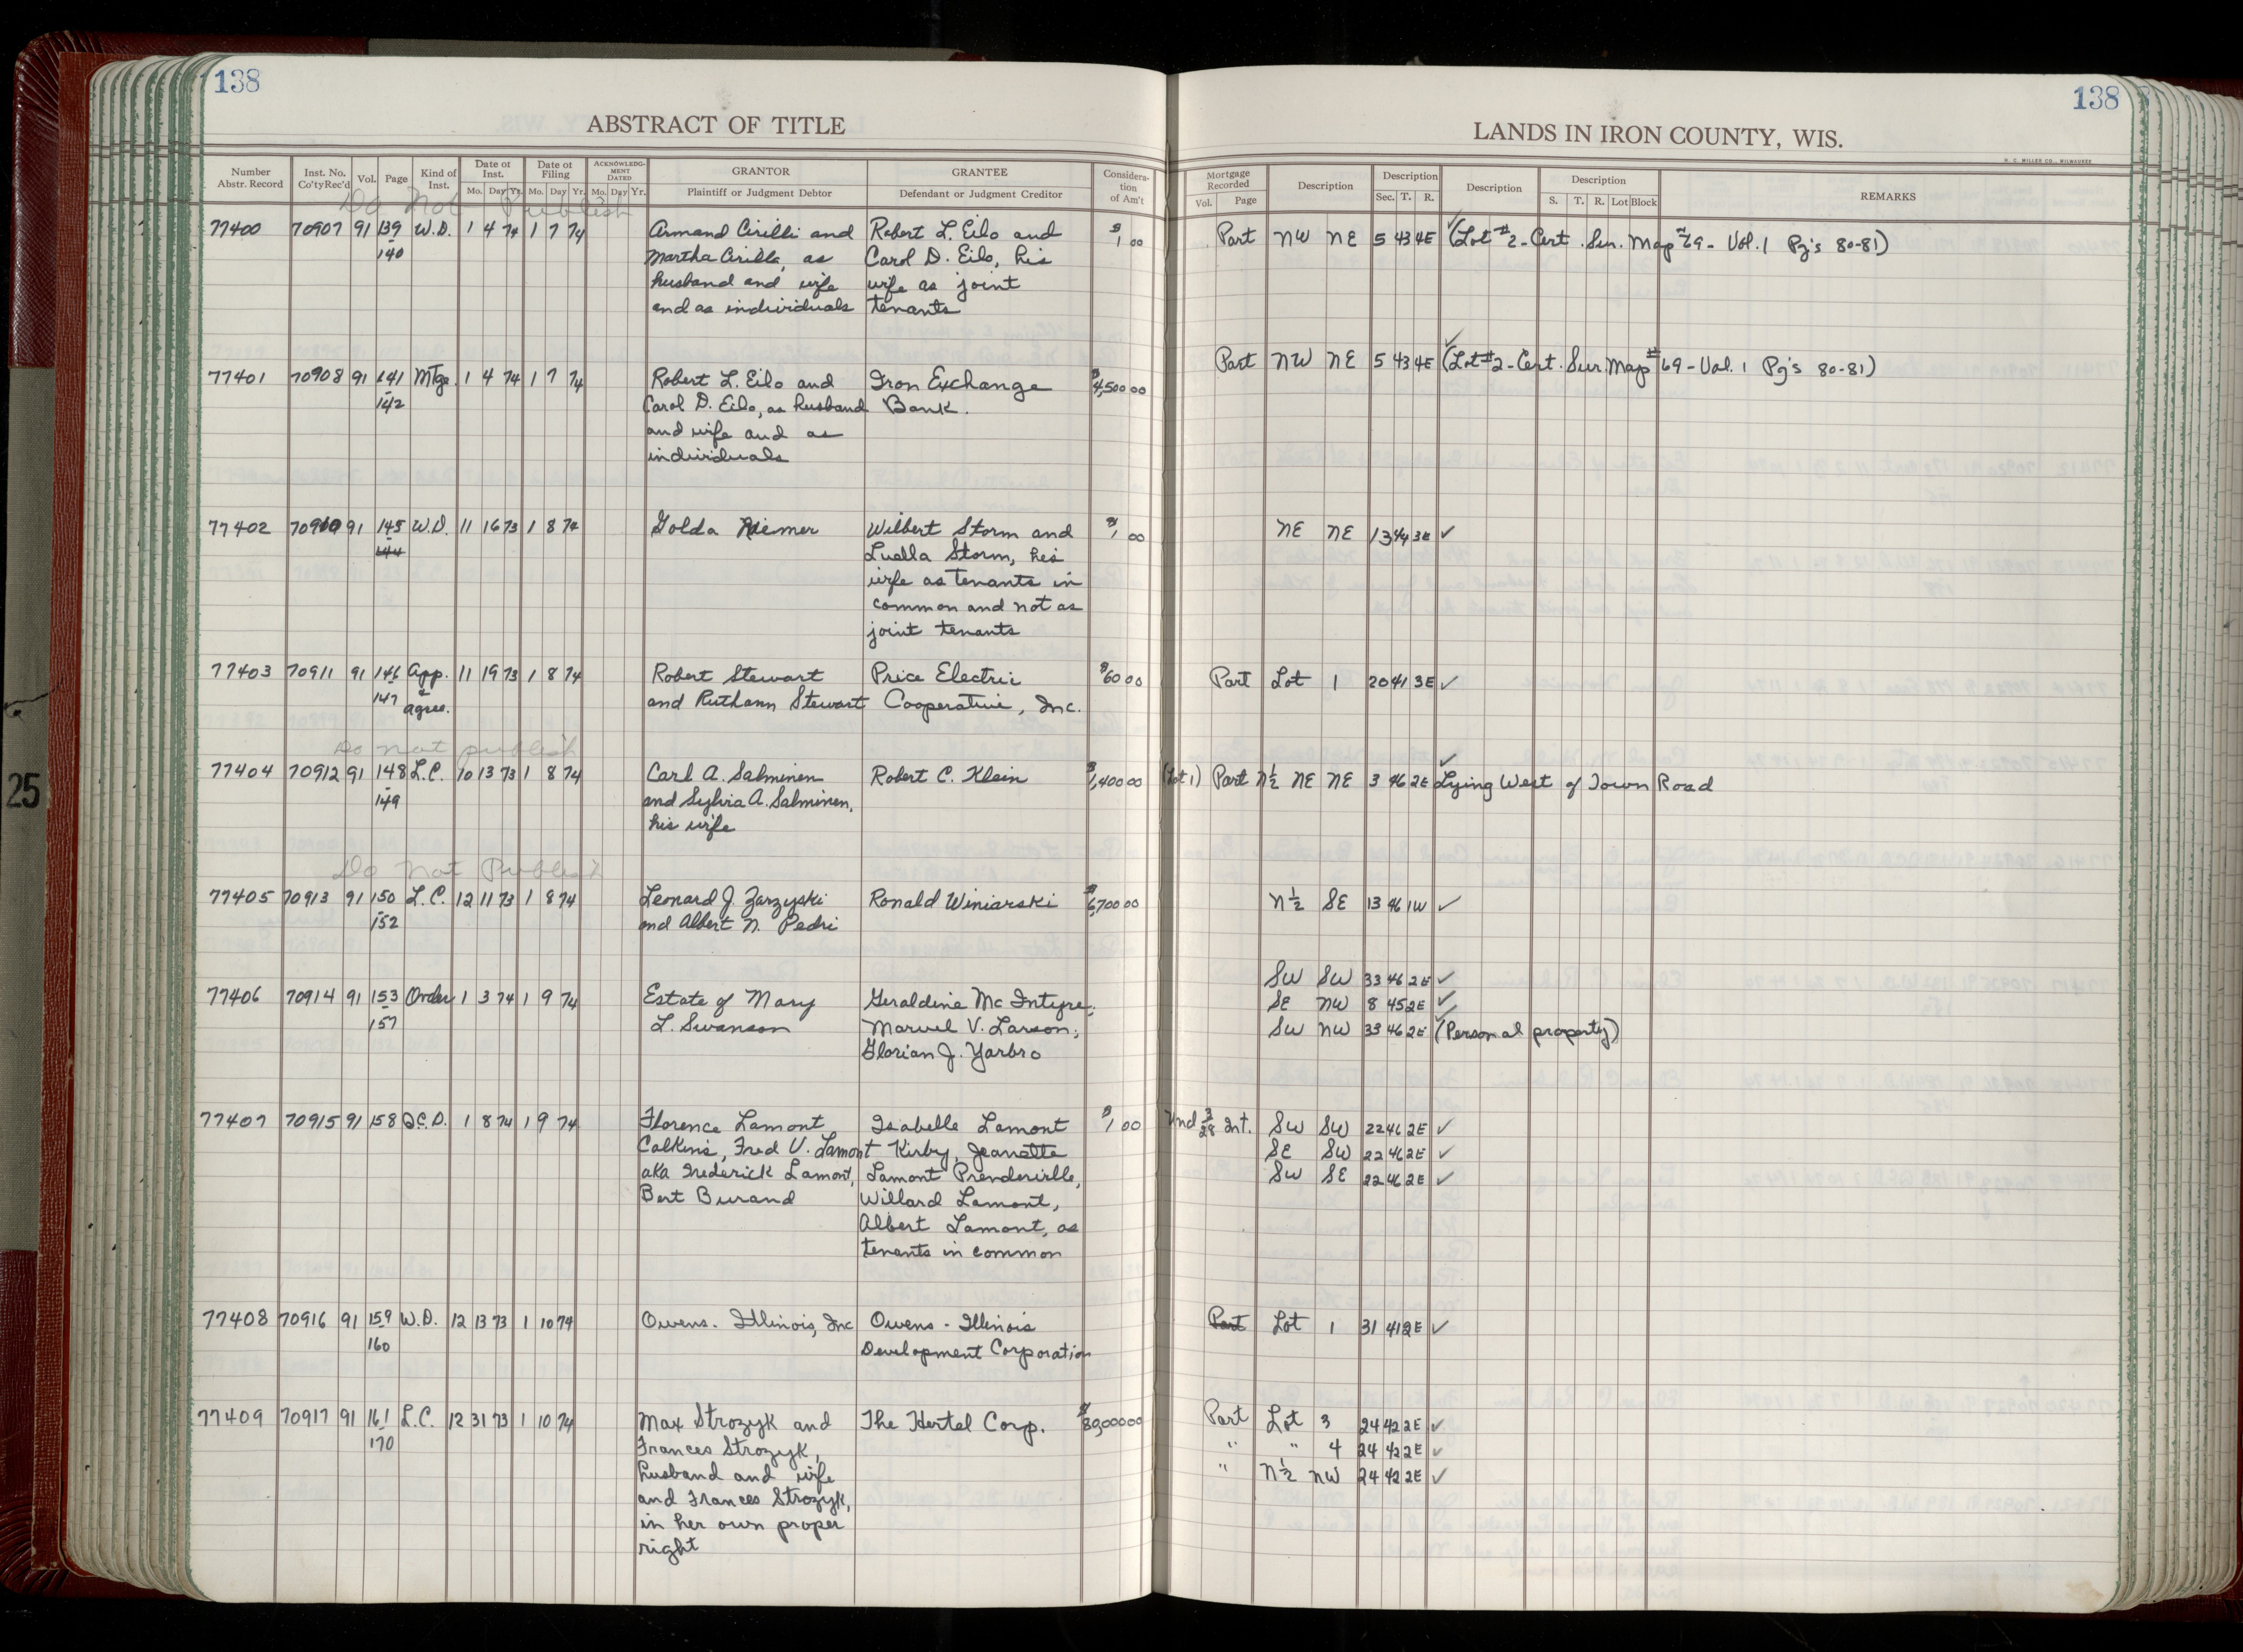 138
138
ABSTRACT OF TITLE
LANDS IN IRON COUNTY, WIS.
H. C. MILLER CO., MILWAUKEE
Number Abstr. Record | Inst. No. Co'ty Rec'd | Vol. | Page | Kind of Inst. | Date of Inst. Mo. Day Yr. | Date of Filing Mo. Day Yr. | ACKNOWLEDGMENT DATED Mo. Day Yr. | GRANTOR Plaintiff or Judgment Debtor | GRANTEE Defendant or Judgment Creditor | Consideration of Am't | Mortgage Recorded Vol. Page | Description | Description Sec. T. R. | Description | Description S. T. R. Lot Block | REMARKS
Do Not Publish
77400 70907 91 139 W.D. 1 4 74 1 7 74 Armand Cirilli and Robert L. Eilo and $1 00 Part NW NE 5 43 4E ✓ (Lot #2 - Cert. Sur. Map #69 - Vol. 1 Pg's 80-81)
140 Martha Cirilli, as Carol D. Eilo, his
husband and wife wife as joint
and as individuals tenants
77401 70908 91 141 Mtge. 1 4 74 1 7 74 Robert L. Eilo and Iron Exchange $4,500 00 Part NW NE 5 43 4E ✓ (Lot #2 - Cert. Sur. Map #69 - Vol. 1 Pg's 80-81)
142 Carol D. Eilo, as husband Bank.
and wife and as
individuals
77402 70910 91 145 W.D. 11 16 73 1 8 74 Golda Niemer Wilbert Storm and $1 00 NE NE 13 44 3E ✓
144 Luella Storm, his
wife as tenants in
common and not as
joint tenants
77403 70911 91 146 App. 11 19 73 1 8 74 Robert Stewart Price Electric $60 00 Part Lot 1 20 41 3E ✓
147 + Agree. and Ruthann Stewart Cooperative, Inc.
Do not publish
77404 70912 91 148 L.C. 10 13 73 1 8 74 Carl A. Salminen Robert C. Klein $1,400 00 (Lot 1) Part N½ NE NE 3 46 2E ✓ Lying West of Town Road
149 and Sylvia A. Salminen,
his wife
Do Not Publish
77405 70913 91 150 L.C. 12 11 73 1 8 74 Leonard J. Zarzyski Ronald Winiarski $6,700 00 N½ SE 13 46 1W ✓
152 and Albert N. Pedri
SW SW 33 46 2E ✓
77406 70914 91 153 Order 1 3 74 1 9 74 Estate of Mary Geraldine McIntyre; SE NW 8 45 2E ✓
157 L. Swanson Marvel V. Larson; SW NW 33 46 2E ✓ (Personal property)
Glorian J. Yarbro
77407 70915 91 158 Q.C.D. 1 8 74 1 9 74 Florence Lamont Isabelle Lamont $1 00 Und 3/28 Int. SW SW 22 46 2E ✓
Calkins, Fred V. Lamont Kirby, Jeanette SE SW 22 46 2E ✓
aka Frederick Lamont, Lamont Prenderville, SW SE 22 46 2E ✓
Bert Burand Willard Lamont,
Albert Lamont, as
tenants in common
77408 70916 91 159 W.D. 12 13 73 1 10 74 Owens-Illinois, Inc Owens-Illinois Part Lot 1 31 41 2E ✓
160 Development Corporation
77409 70917 91 161 L.C. 12 31 73 1 10 74 Max Strozyk and The Hertel Corp. Part Lot 3 24 42 2E ✓
170 Frances Strozyk, " " 4 24 42 2E ✓
husband and wife " N½ NW 24 42 2E ✓
and Frances Strozyk,
in her own proper
right
25